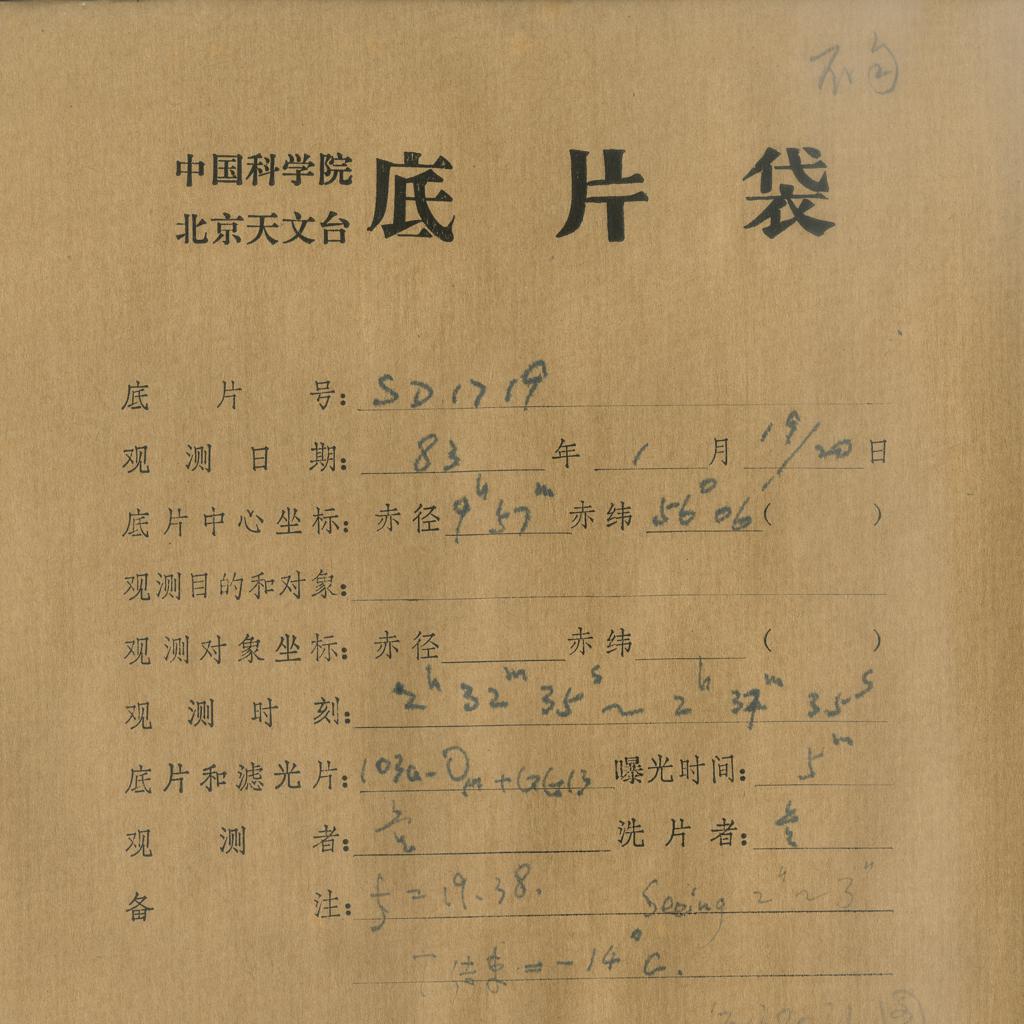 中国科学院
北京天文台
底片袋
底片号: SD1719
观测日期: 83年1月19/20日
底片中心坐标: 赤径9h57m赤纬56°06′( )
观测目的和对象:
观测对象坐标: 赤径 赤纬 ( )
观测时刻: 2h 32m 35s ~ 2h 37m 35s
底片和滤光片: 103a-O + GG13 曝光时间: 5m
观测者: 洗片者:
备注: f = 19.38. Seeing 2"~3"
T结束 = -14°C.